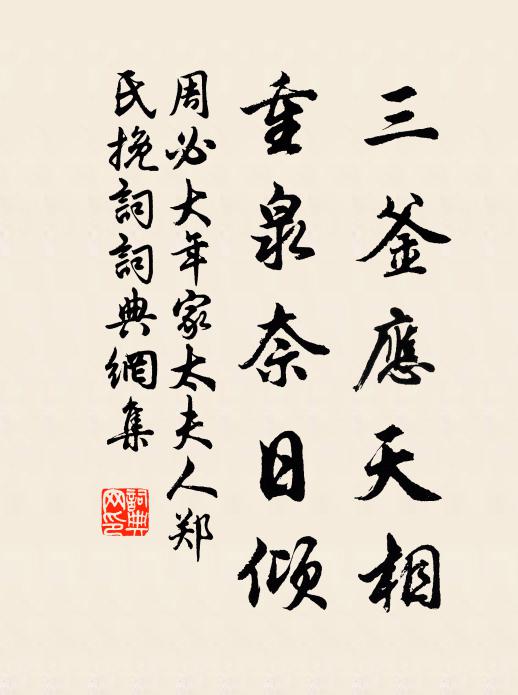 三釜應天相
重泉奈日傾
周必大年家太夫人郑
民挽詞詞典網集
詞典网印